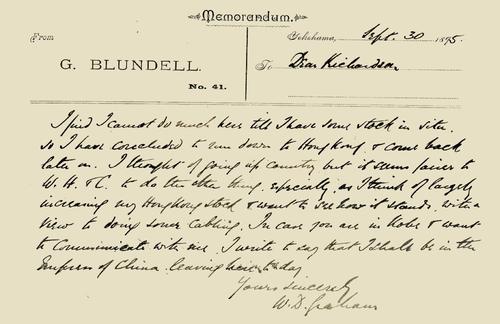 Memorandum.
From
G. BLUNDELL.
No. 41.
Yokohama, Sept. 30 1895.
To Dear Richardson
I find I cannot do much here till I have some stock in situ.
so I have concluded to run down to Hong Kong & come back
later on. I thought of going up country but it seems fairer to
W. H. & C. to do the other thing, especially as I think of largely
increasing my Hongkong stock & want to see how it stands, with a
view to doing some cabling. In case you are in Kobe & want
to communicate with me. I write to say that I shall be in the
Empress of China leaving here to day
Yours sincerely
W. D. Graham